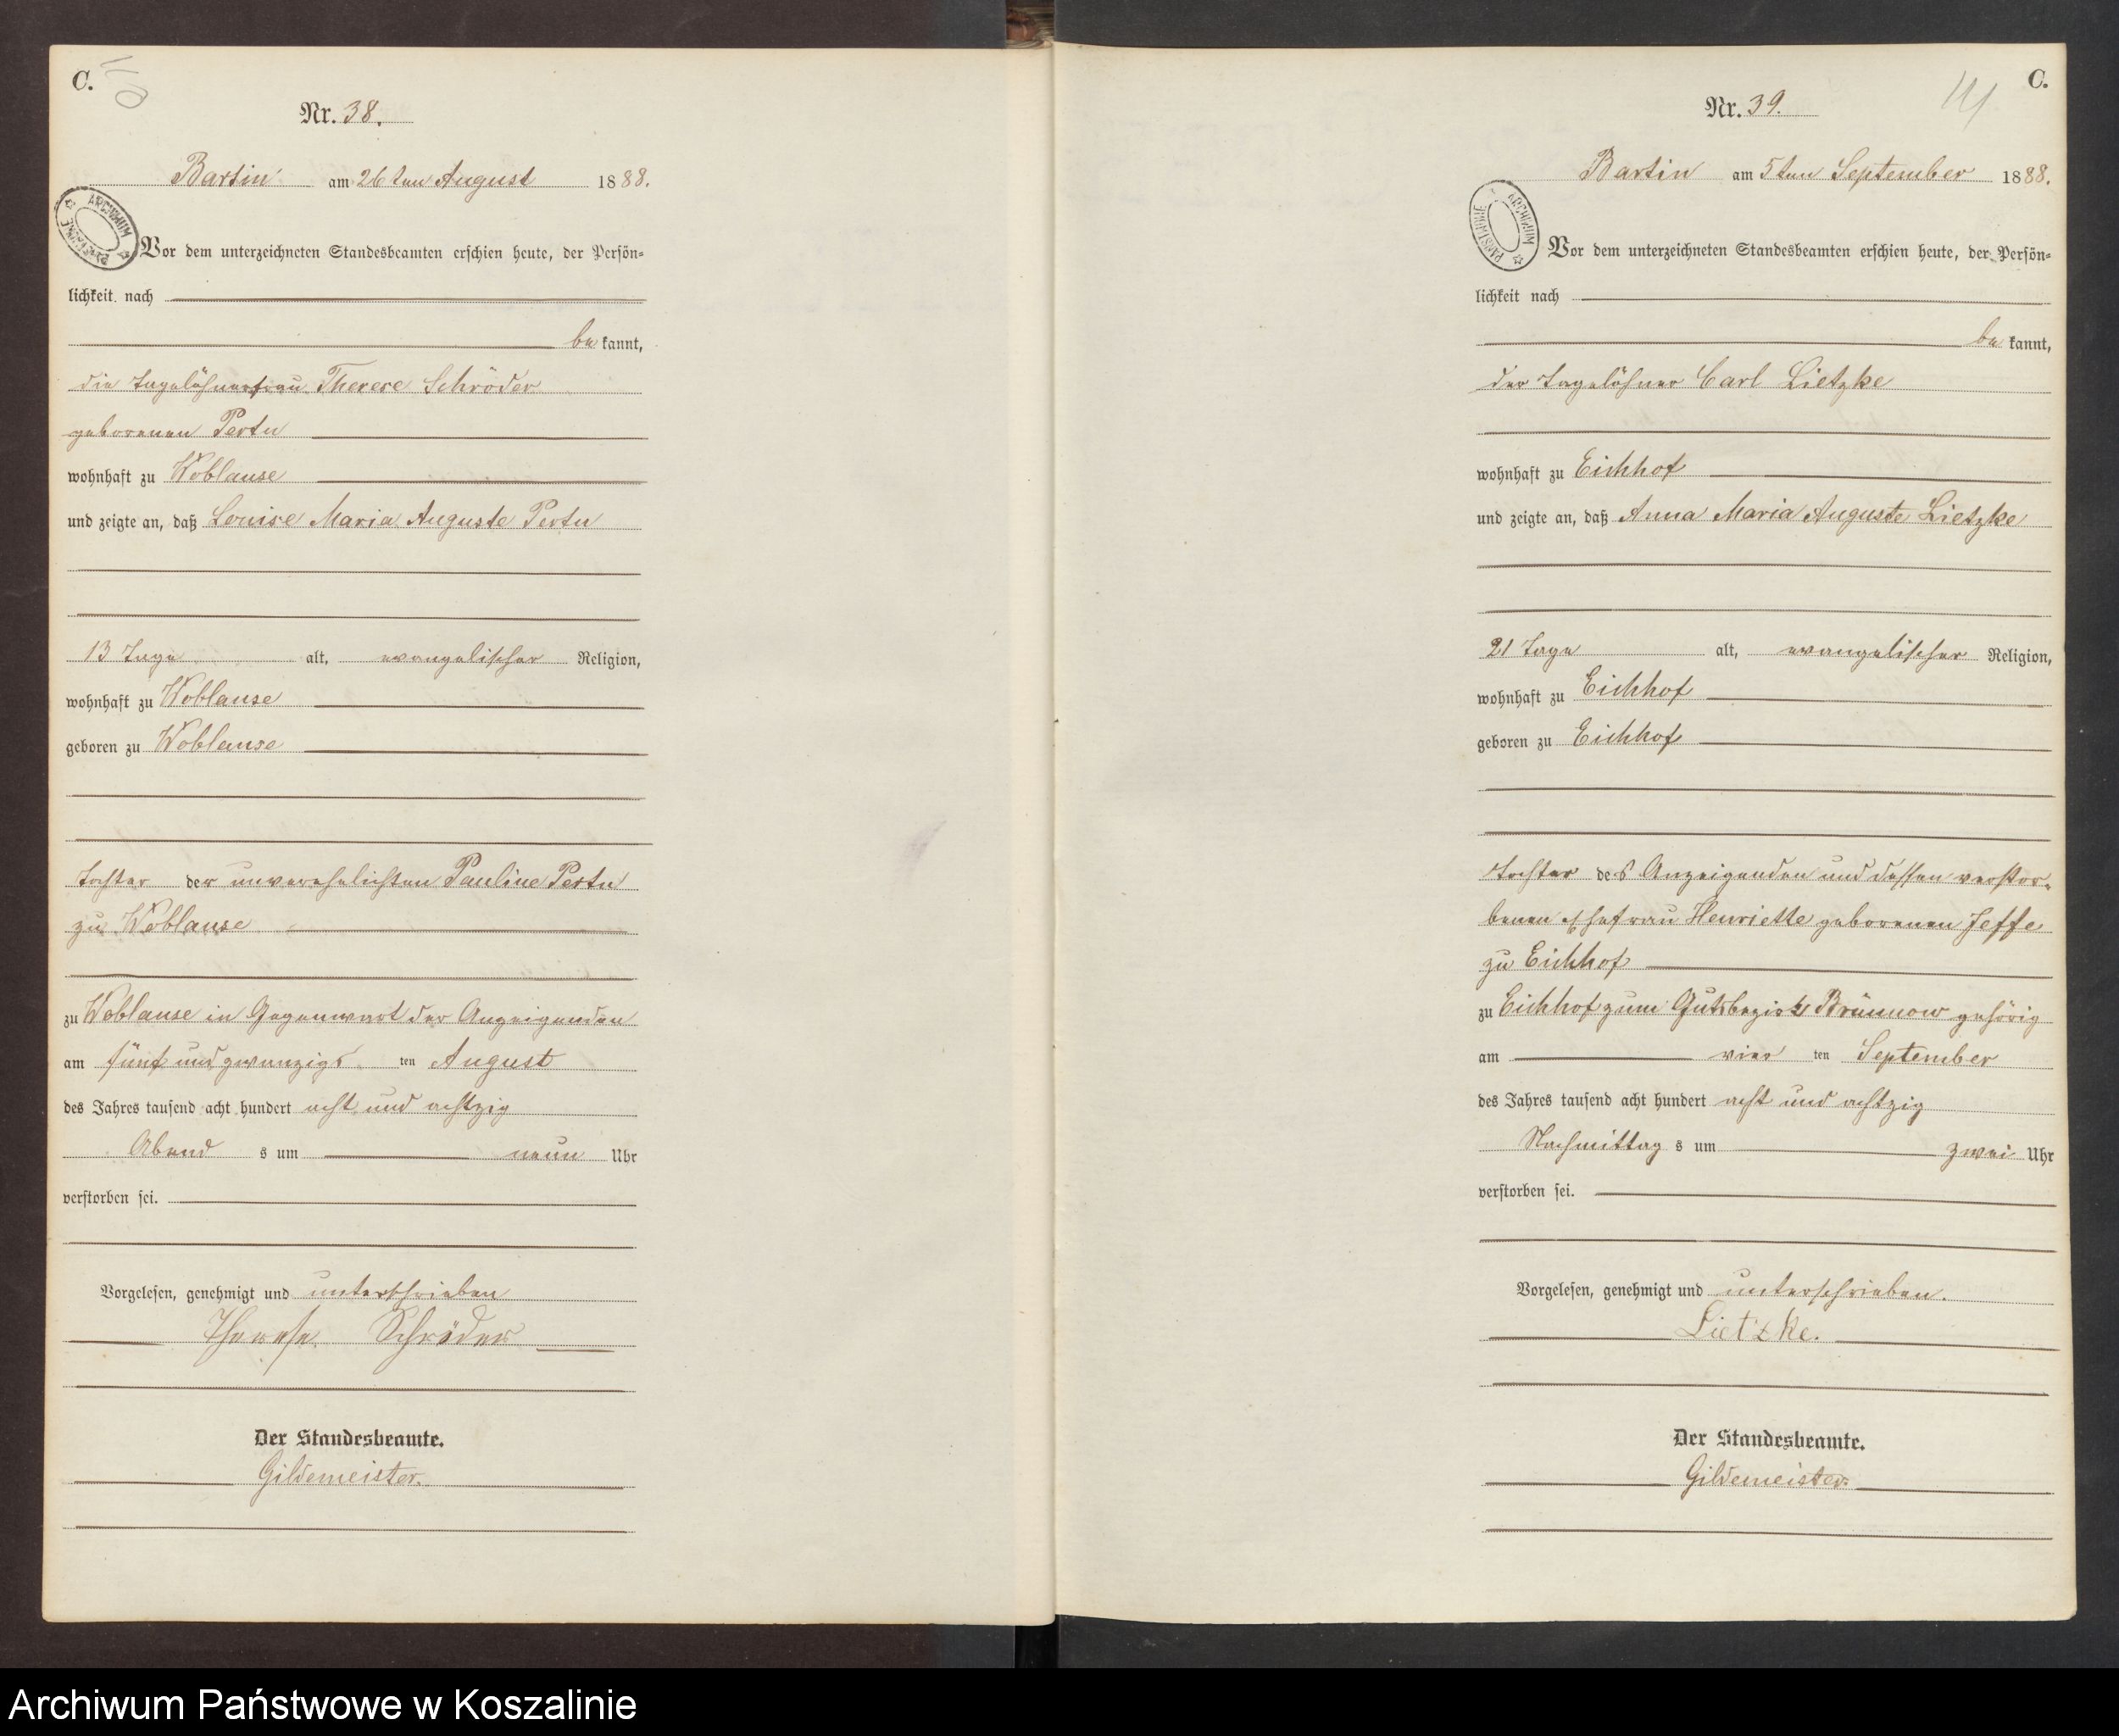 C.
110
Nr. 38.
Bartin am 26ten August 1888.
ARCHIWUM PAŃSTWOWE
Vor dem unterzeichneten Standesbeamten erschien heute, der Persön-
lichkeit nach
be kannt,
die Tagelöhnerfrau Therese Schröder
geborenen Pertu
wohnhaft zu Woblanse
und zeigte an, daß Louise Maria Auguste Pertu
13 Tage alt, evangelischer Religion,
wohnhaft zu Woblanse
geboren zu Woblanse
Tochter der unverehelichten Pauline Pertu
zu Woblanse
zu Woblanse in Gegenwart der Anzeigenden
am fünf und zwanzigs ten August
des Jahres tausend acht hundert acht und achtzig
Abend s um neun Uhr
verstorben sei.
Vorgelesen, genehmigt und unterschrieben
Therese Schröder
Der Standesbeamte.
Gildemeister.
C.
111
Nr. 39.
Bartin am 5ten September 1888.
ARCHIWUM PAŃSTWOWE
Vor dem unterzeichneten Standesbeamten erschien heute, der Persön-
lichkeit nach
be kannt,
der Tagelöhner Carl Lietzke
wohnhaft zu Eichhof
und zeigte an, daß Anna Maria Auguste Lietzke
21 Tage alt, evangelischer Religion,
wohnhaft zu Eichhof
geboren zu Eichhof
Tochter des Anzeigenden und dessen verstor-
benen Ehefrau Henriette geborenen Jeffe
zu Eichhof
zu Eichhof zum Gutsbezirk Brünnow gehörig
am vier ten September
des Jahres tausend acht hundert acht und achtzig
Nachmittag s um zwei Uhr
verstorben sei.
Vorgelesen, genehmigt und unterschrieben.
Lietzke.
Der Standesbeamte.
Gildemeister.
Archiwum Państwowe w Koszalinie